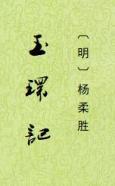 〔明〕杨柔胜
玉環記